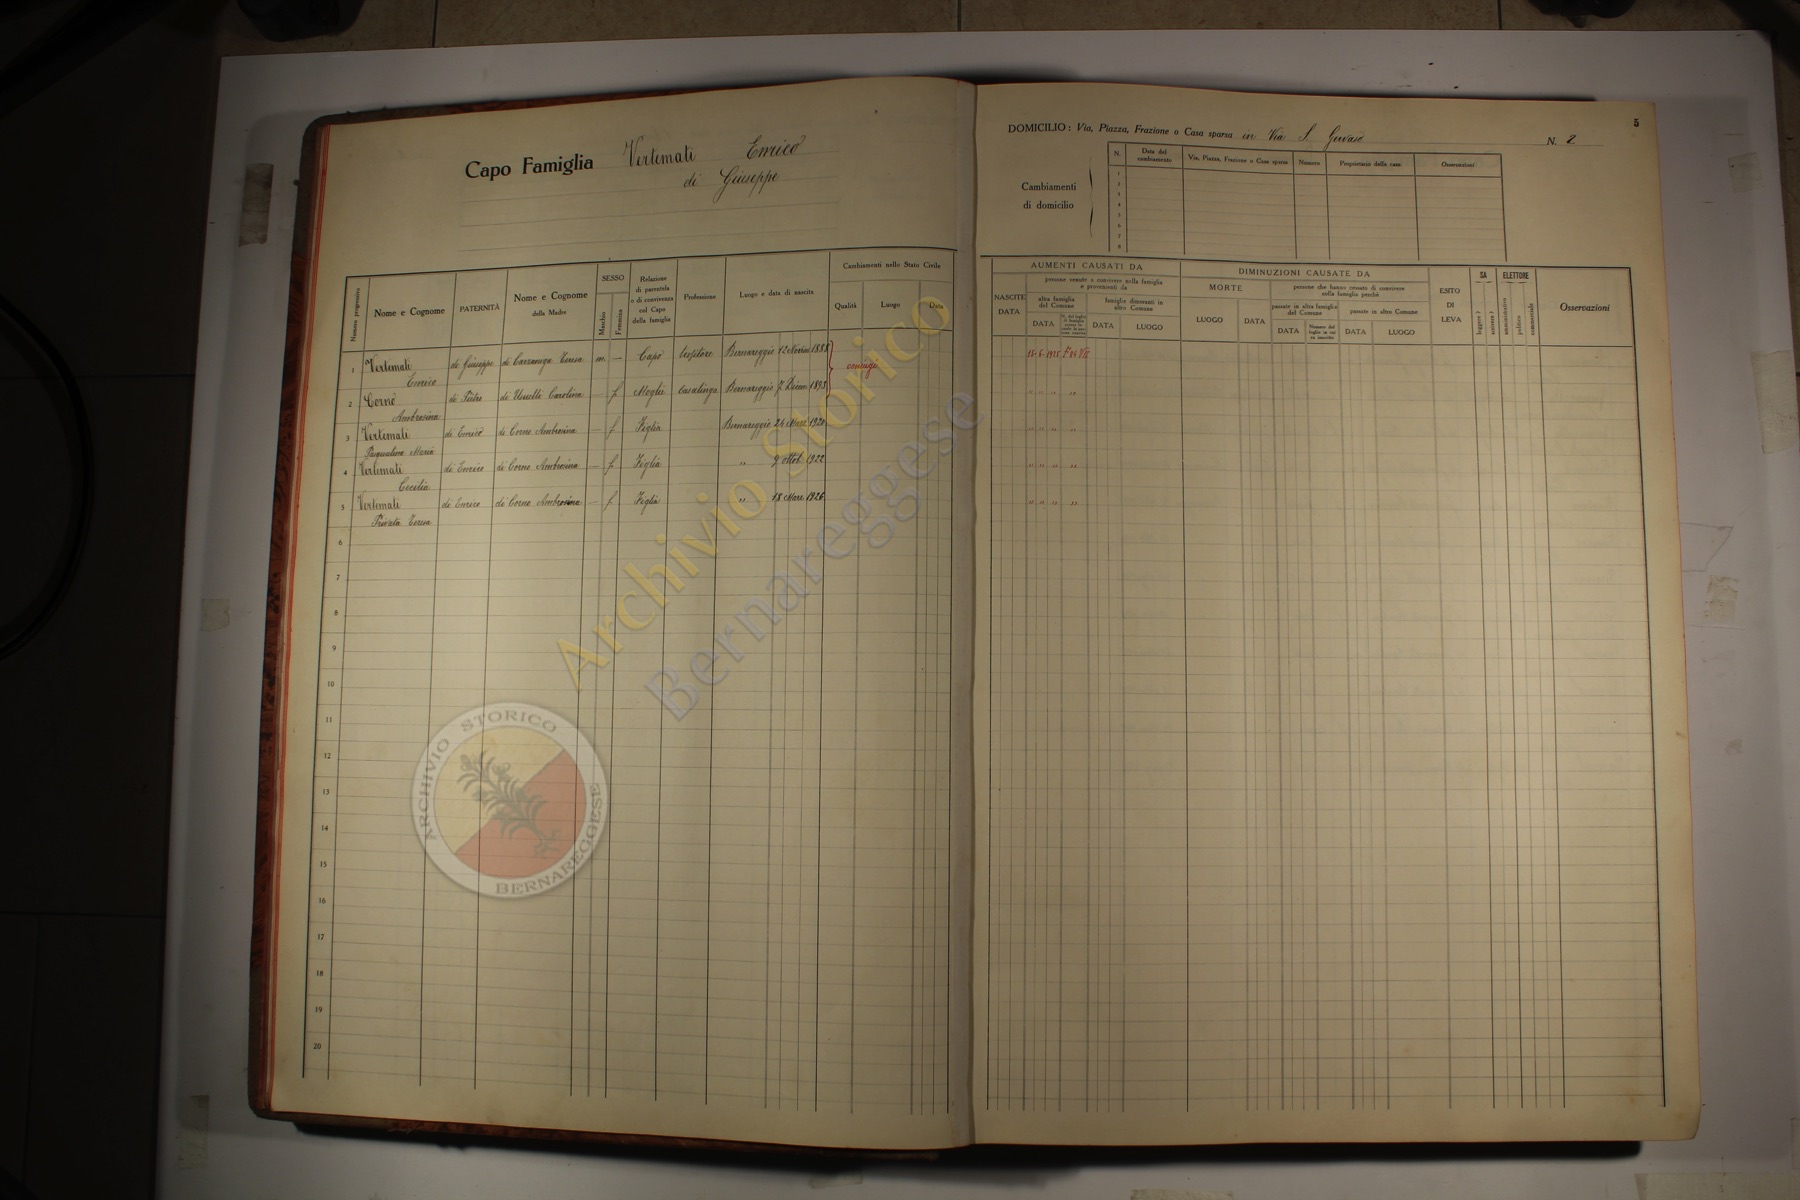 Capo Famiglia Vertemati Enrico
di Giuseppe
Numero progressivo
Nome e Cognome
PATERNITÀ
Nome e Cognome
della Madre
SESSO
Maschio
Femmina
Relazione
di parentela
o di convivenza
col Capo
della famiglia
Professione
Luogo e data di nascita
Cambiamenti nello Stato Civile
Qualità
Luogo
Data
1 Vertemati di Giuseppe m. — Capo Bernareggio 1888
Enrico coniugi
2 Corno di Pietro di Carolina — f Moglie Casalinga Bernareggio 1895
Ambrosina
3 Vertemati di Enrico di Corno Ambrosina — f Figlia Bernareggio 24 1920
Pasqualina Maria
4 Vertemati di Enrico di Corno Ambrosina — f. Figlia „ 9 ottob. 1922
Cecilia
5 Vertemati di Enrico di Corno Ambrosina — f. Figlia „ 18 Marz. 1926
Teresa
6
7
8
9
10
11
12
13
14
15
16
17
18
19
20
5
DOMICILIO: Via, Piazza, Frazione o Casa sparsa in Via S. N. 2
Cambiamenti
di domicilio
N.
Data del
cambiamento
Via, Piazza, Frazione o Casa sparsa
Numero
Proprietario della casa
Osservazioni
1
2
3
4
5
6
7
8
AUMENTI CAUSATI DA
NASCITE
DATA
persone venute a convivere nella famiglia
e provenienti da
altra famiglia
del Comune
DATA
famiglie dimoranti in
altro Comune
DATA
LUOGO
DIMINUZIONI CAUSATE DA
MORTE
LUOGO
DATA
persone che hanno cessato di convivere
nella famiglia perchè
passate in altra famiglia
del Comune
DATA
Numero del
foglio in cui
va inscritto
passate in altro Comune
DATA
LUOGO
ESITO
DI
LEVA
SA
leggere?
scrivere?
ELETTORE
amministrativo
politico
commerciale
Osservazioni
„ „ „ „
„ „ „ „
„ „ „ „
„ „ „ „
Archivio Storico
Bernareggese
ARCHIVIO STORICO
BERNAREGGESE